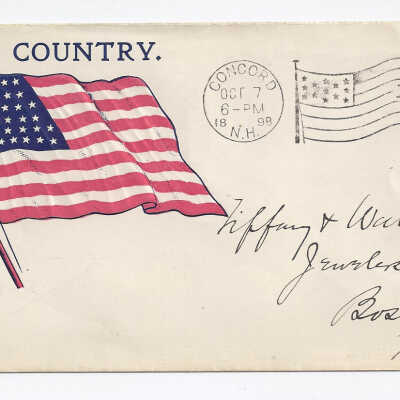 COUNTRY.
CONCORD
OCT 7
6-PM
18 98
N.H.
Tiffany & Wa
Jewelers
Bos